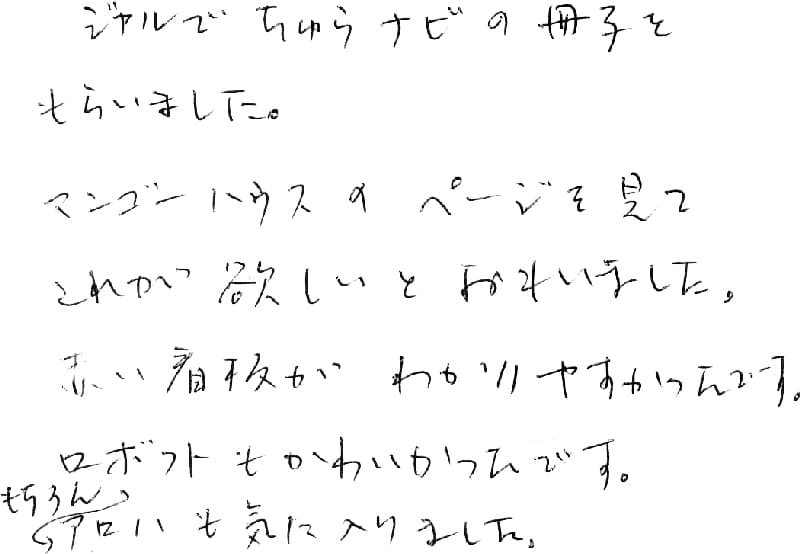 ジャルで ちゅらナビの 冊子を
もらいました。
マンゴーハウスの ページを見て
これが 欲しいと おもいました。
赤い看板が わかりやすかったです。
ロボットもかわいかったです。
もちろん
アロハも気に入りました。